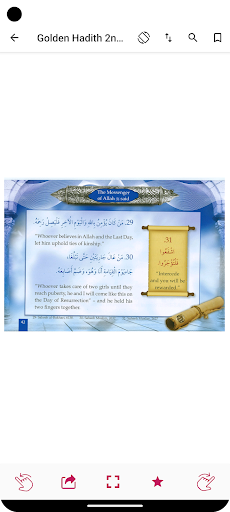 Golden Hadith 2n...
The Messenger
of Allah ﷺ said
29. مَن كَانَ يُؤْمِنُ بِاللهِ وَالْيَوْمِ الْآخِرِ فَلْيَصِلْ رَحِمَهُ
"Whoever believes in Allah and the Last Day,
let him uphold ties of kinship."
30. مَنْ عَالَ جَارِيَتَيْنِ حَتَّى تَبْلُغَا،
جَاءَ يَوْمَ الْقِيَامَةِ أَنَا وَهُوَ، وَضَمَّ أَصَابِعَهُ.
"Whoever takes care of two girls until they
reach puberty, he and I will come like this on
the Day of Resurrection" - and he held his
two fingers together.
31
اشْفَعُوا
فَلْتُؤْجَرُوا
"Intercede
and you will be
rewarded."
42